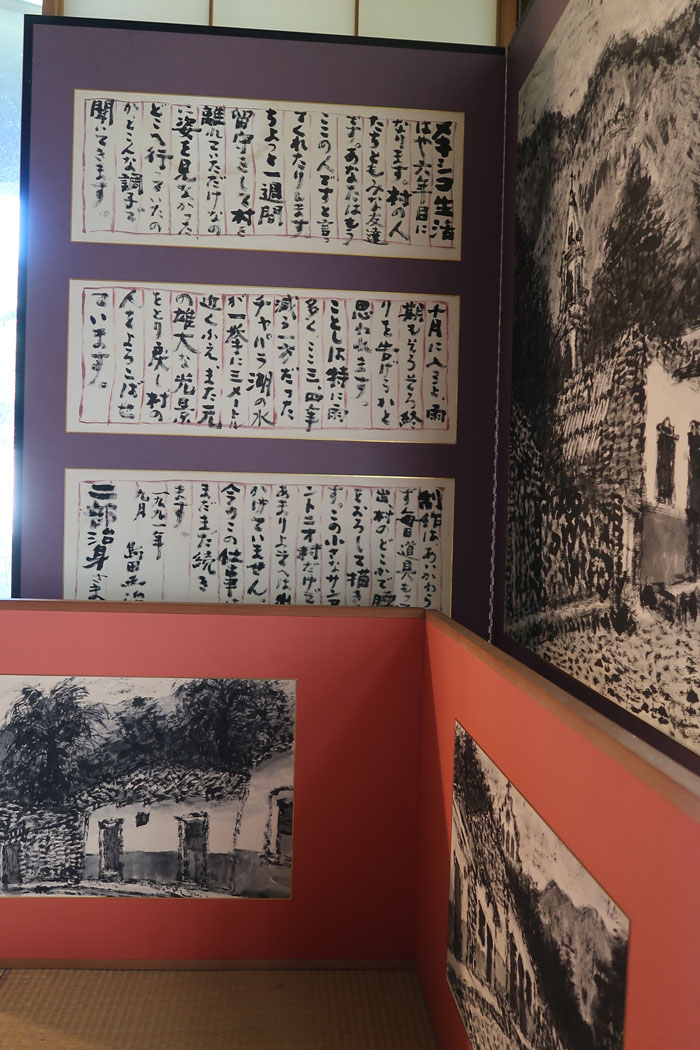 メキシコ生活
はや六年目に
なります。村の人
たちともみな友達
です。あなたはもう
ここの人ですと言っ
てくれたりします。
ちょっと一週間
留守をして村を
離れていただけなの
に姿を見なかった、
どこへ行っていたの
か、とこんな調子で
聞いてきます。
十月に入ると、雨
期もそろそろ終
りを告げるかと
思われます。
ことしは特に雨
多く、ここ三、四年
減る一方だった
チャパラ湖の水
が一挙に三メートル
近くふえ、また元
の雄大な光景
をとり戻し村の
人をよろこばせ
ています。
制作はあいかわら
ず毎日道具もっ
村のどこかで腰
をおろして描き
す。この小さなサン
ントニオ村だけで
あまりよそへは
かけていません。
今のこの仕事は
まだまだ続き
ます。
一九九一年
九月 島田
二部治身さま